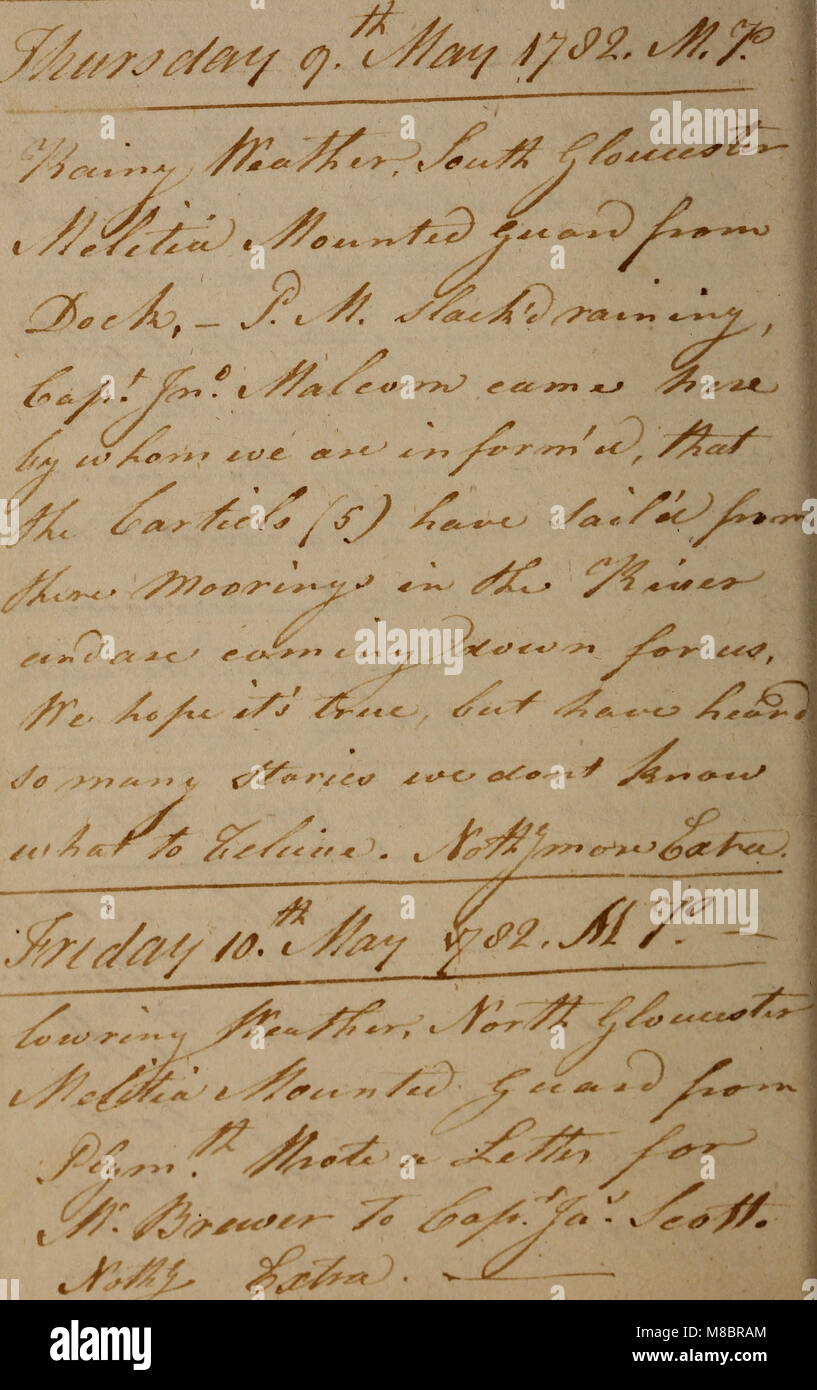 Thursday 9.th May 1782. M. P.
Rainy Weather, South Gloucester
Melitia Mounted Guard from
Dock, – P. M. slack'd raining,
Capt. Jno. Malcom came here
by whom we are inform'd, that
the Cartiels (5) have sail'd from
there Moorings in the River
and are coming down for us,
We hope it's true, but have heard
so many stories we dont know
what to beleive. Nothg more Extra.
Friday 10.th May 1782. M P. –
lowring Weather, North Gloucester
Melitia Mounted Guard from
Plym.th Wrote a Letter for
Mr. Brewer to Capt. Jas. Scott.
Nothg Extra. —
alamy
alamy stock photo
alamy
Image ID: M8BRAM
www.alamy.com